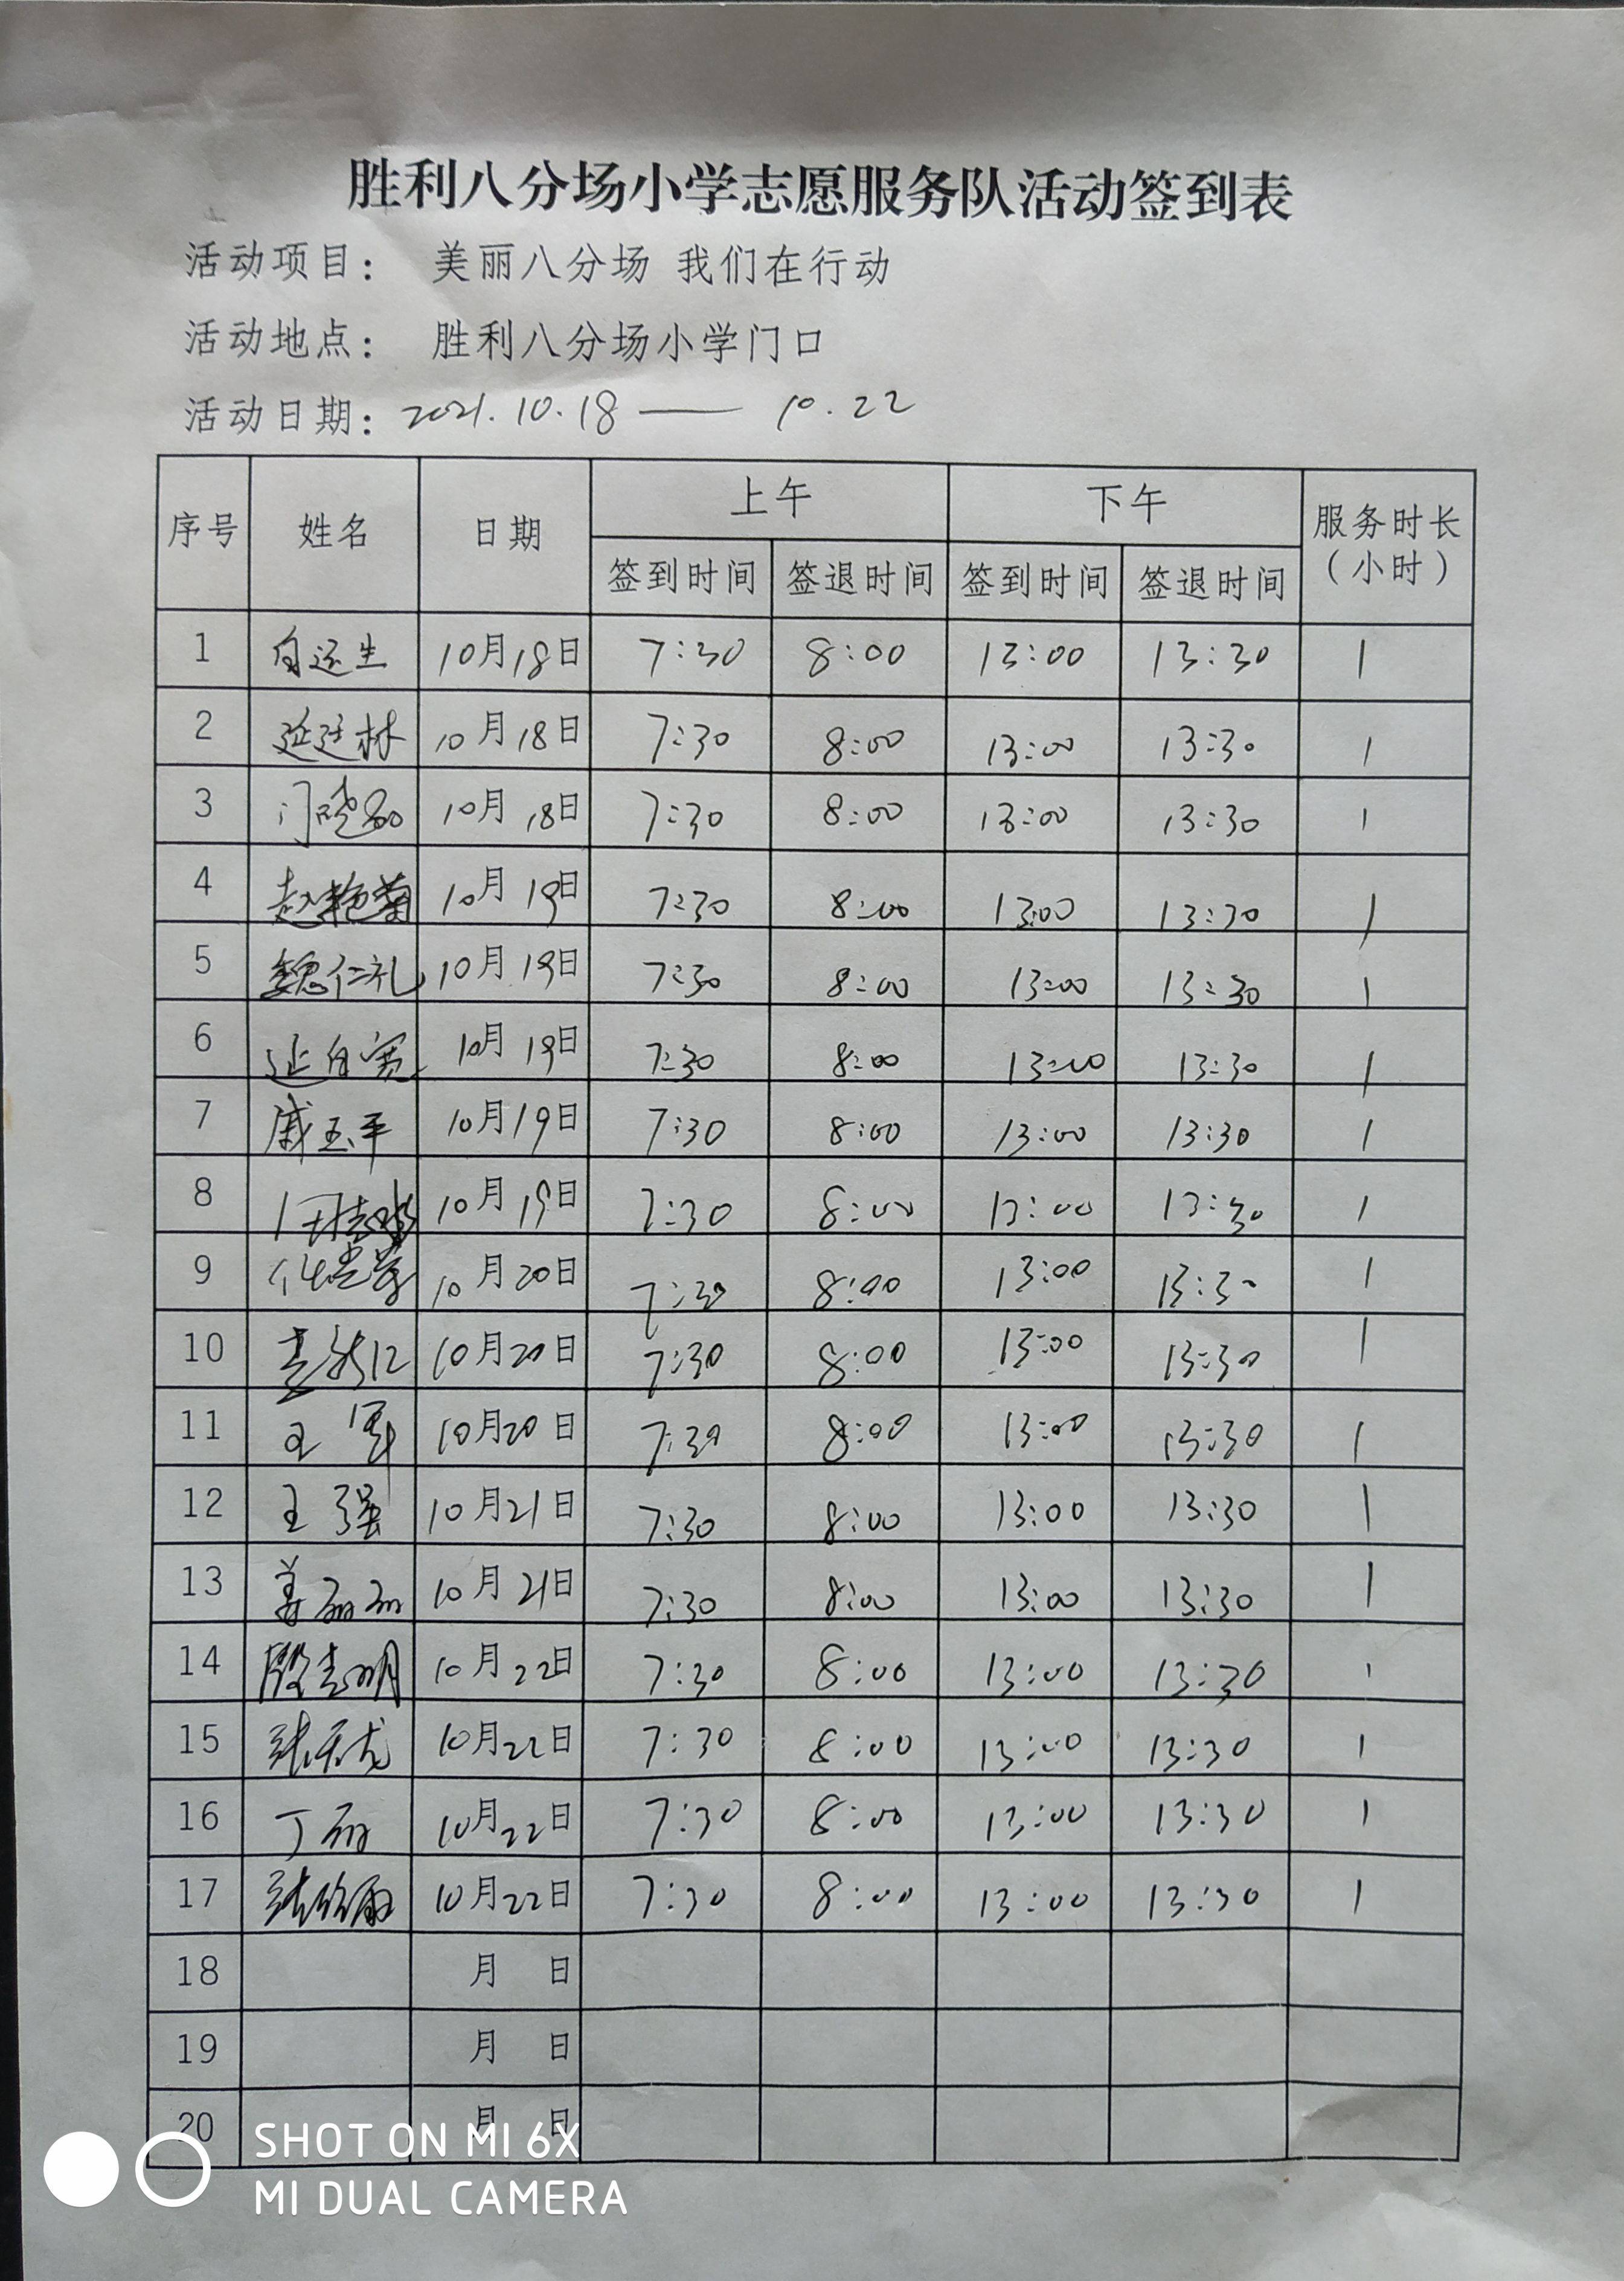 胜利八分场小学志愿服务队活动签到表
活动项目： 美丽八分场 我们在行动
活动地点： 胜利八分场小学门口
活动日期：2021.10.18 —— 10.22
序号 姓名 日期 上午 下午 服务时长（小时）
签到时间 签退时间 签到时间 签退时间
1 10月18日 7:30 8:00 13:00 13:30 1
2 10月18日 7:30 8:00 13:00 13:30 1
3 10月18日 7:30 8:00 13:00 13:30 1
4 赵艳菊 10月19日 7:30 8:00 13:00 13:30 1
5 魏仁礼 10月19日 7:30 8:00 13:00 13:30 1
6 10月19日 7:30 8:00 13:00 13:30 1
7 戚玉平 10月19日 7:30 8:00 13:00 13:30 1
8 10月19日 7:30 8:00 13:00 13:30 1
9 10月20日 7:30 8:00 13:00 13:30 1
10 10月20日 7:30 8:00 13:00 13:30 1
11 王军 10月20日 7:30 8:00 13:00 13:30 1
12 王强 10月21日 7:30 8:00 13:00 13:30 1
13 姜丽丽 10月21日 7:30 8:00 13:00 13:30 1
14 殷志明 10月22日 7:30 8:00 13:00 13:30 1
15 10月22日 7:30 8:00 13:00 13:30 1
16 丁丽 10月22日 7:30 8:00 13:00 13:30 1
17 10月22日 7:30 8:00 13:00 13:30 1
18 月 日
19 月 日
20 月 日
SHOT ON MI 6X
MI DUAL CAMERA